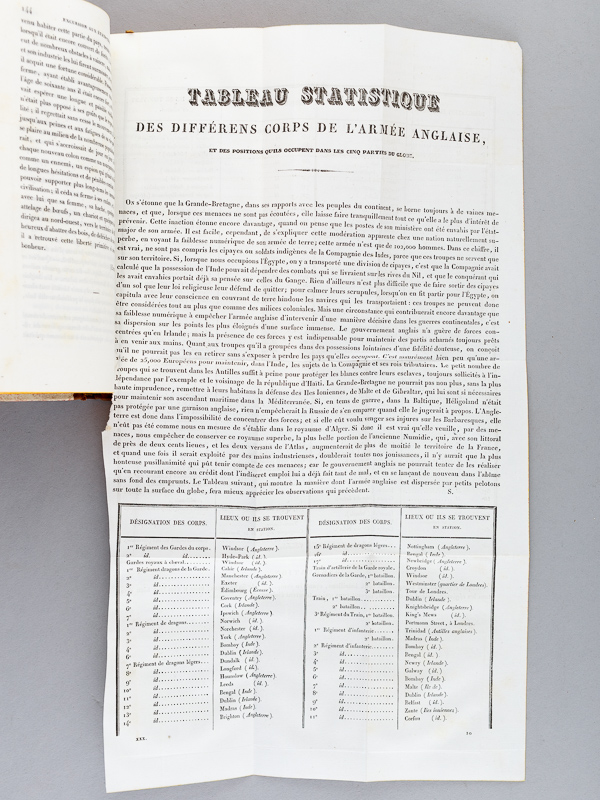 144 EXCURSION AUX
TABLEAU STATISTIQUE
DES DIFFÉRENS CORPS DE L'ARMÉE ANGLAISE,
ET DES POSITIONS QU'ILS OCCUPENT DANS LES CINQ PARTIES DU GLOBE.
On s'étonne que la Grande-Bretagne, dans ses rapports avec les peuples du continent, se borne toujours à de vaines me-
naces, et que, lorsque ces menaces ne sont pas écoutées, elle laisse faire tranquillement tout ce qu'elle a le plus d'intérêt de
prévenir. Cette inaction étonne davantage, quand on pense que les postes de ses ministres ont été enviés par l'état-
major de son armée. Il est facile, cependant, de s'expliquer cette modération apparente chez une nation naturellement su-
perbe, en voyant la faiblesse numérique de son armée de terre; cette armée n'est que de 102,000 hommes. Dans ce chiffre, il
est vrai, ne sont pas compris les cipayes ou soldats indigènes de la Compagnie des Indes, parce que ces troupes ne servent que
sur son territoire. Si, lorsque nous occupions l'Égypte, on y a transporté une division de cipayes, c'est que la Compagnie avait
calculé que la possession de l'Inde pouvait dépendre des combats qui se livraient sur les rives du Nil, et que le conquérant qui
les avait envahies portait déjà sa pensée sur celles du Gange. Rien d'ailleurs n'est plus difficile que de faire sortir des cipayes
d'un sol que leur loi religieuse leur défend de quitter; pour calmer leurs scrupules, lorsqu'on en fit partir pour l'Égypte, on
capitula avec leur conscience en couvrant de terre hindoue les navires qui les transportaient: ces troupes ne peuvent donc
être considérées tout au plus que comme des milices coloniales. Mais une circonstance qui contribuerait encore davantage que
sa faiblesse numérique à empêcher l'armée anglaise d'intervenir d'une manière décisive dans les guerres continentales, c'est
sa dispersion sur les points les plus éloignés d'une surface immense. Le gouvernement anglais n'a guère de forces con-
centrées qu'en Irlande; mais la présence de ces forces y est indispensable pour maintenir des partis acharnés toujours prêts
à en venir aux mains. Quant aux troupes qu'il a groupées dans des possessions lointaines d'une fidélité douteuse, on conçoit
qu'il ne pourrait pas les en retirer sans s'exposer à perdre les pays qu'elles occupent. C'est assurément bien peu qu'une ar-
mée de 25,000 Européens pour maintenir, dans l'Inde, les sujets de la Compagnie et ses rois tributaires. Le petit nombre de
troupes qui se trouvent dans les Antilles suffit à peine pour protéger les blancs contre leurs esclaves, toujours sollicités à l'in-
dépendance par l'exemple et le voisinage de la république d'Haïti. La Grande-Bretagne ne pourrait pas non plus, sans la plus
haute imprudence, remettre à leurs habitans la défense des Îles Ioniennes, de Malte et de Gibraltar, qui lui sont si nécessaires
pour maintenir son ascendant maritime dans la Méditerranée. Si, en tems de guerre, dans la Baltique, Héligoland n'était
pas protégée par une garnison anglaise, rien n'empêcherait la Russie de s'en emparer quand elle le jugerait à propos. L'Angle-
terre est donc dans l'impossibilité de concentrer des forces; et si elle eût voulu venger ses injures sur les Barbaresques, elle
n'eût pas été comme nous en mesure de s'établir dans le royaume d'Alger. Si donc il est vrai qu'elle veuille, par des me-
naces, nous empêcher de conserver ce royaume superbe, la plus belle portion de l'ancienne Numidie, qui, avec son littoral
de près de deux cents lieues, et les deux versans de l'Atlas, augmenterait de plus de moitié le territoire de la France,
et quand une fois il serait exploité par des mains industrieuses, doublerait toutes nos jouissances, il n'y aurait que la plus
honteuse pusillanimité qui pût tenir compte de ces menaces; car le gouvernement anglais ne pourrait tenter de les réaliser
qu'en recourant encore au crédit dont l'indiscret emploi lui a déjà fait tant de mal, et en se lançant de nouveau dans l'abîme
sans fond des emprunts. Le Tableau suivant, qui montre la manière dont l'armée anglaise est dispersée par petits pelotons
sur toute la surface du globe, fera mieux apprécier les observations qui précèdent. S.
DÉSIGNATION DES CORPS. LIEUX OU ILS SE TROUVENT EN STATION. DÉSIGNATION DES CORPS. LIEUX OU ILS SE TROUVENT EN STATION.
1er Régiment des Gardes du corps. Windsor (Angleterre). 15e Régiment de dragons légers... Nottingham (Angleterre).
2e id. id. Hyde-Park (id.). 16e id. Bengal (Inde)
Gardes royaux à cheval Windsor (id.) 17e id. Newbridge (Angleterre)
1er Régiment dragons de la Garde. Cahir (Irlande). Train d'artillerie de la Garde royale. Croydon (id.)
2e id. Manchester (Angleterre) Grenadiers de la Garde, 1er bataillon. Windsor (id.)
3e id. Exeter (id.) 2e bataillon. Westminster (quartier de Londres).
4e id. Édimbourg (Écosse) 3e bataillon. Tour de Londres.
5e id. Coventry (Angleterre). Train, 1er bataillon. Dublin (Irlande).
6e id. Cork (Irlande). 2e bataillon. Knightsbridge (Angleterre)
7e id. Ipswich (Angleterre) 3e Régiment du Train, 1er bataillon. King's Mews (id.)
1er Régiment de dragons Norwich (id.) 2e bataillon. Portmann Street, à Londres.
2e id. Norchester (id.) 1er Régiment d'infanterie Trinidad (Antilles anglaises)
3e id. York (Angleterre). 2e bataillon. Madras (Inde)
4e id. Bombay (Inde) 2e Régiment d'infanterie Bombay (id.)
6e id. Dublin (Irlande) 3e id. Bengal (id.)
7e Régiment de dragons légers... Dundalk (id.) 4e id. Newry (Irlande)
8e id. Longford (id.) 5e id. Galway (id.)
9e id. Hounslow (Angleterre) 6e id. Bombay (Inde)
10e id. Leeds (id.) 7e id. Malte (Île de)
11e id. Bengal (Inde) 8e id. Dublin (Irlande)
12e id. Dublin (Irlande) 9e id. Belfast (id.)
13e id. Madras (Inde) 10e id. Zante (Îles ioniennes).
14e id. Brighton (Angleterre) 11e id. Corfou (id.)
XXX. 10